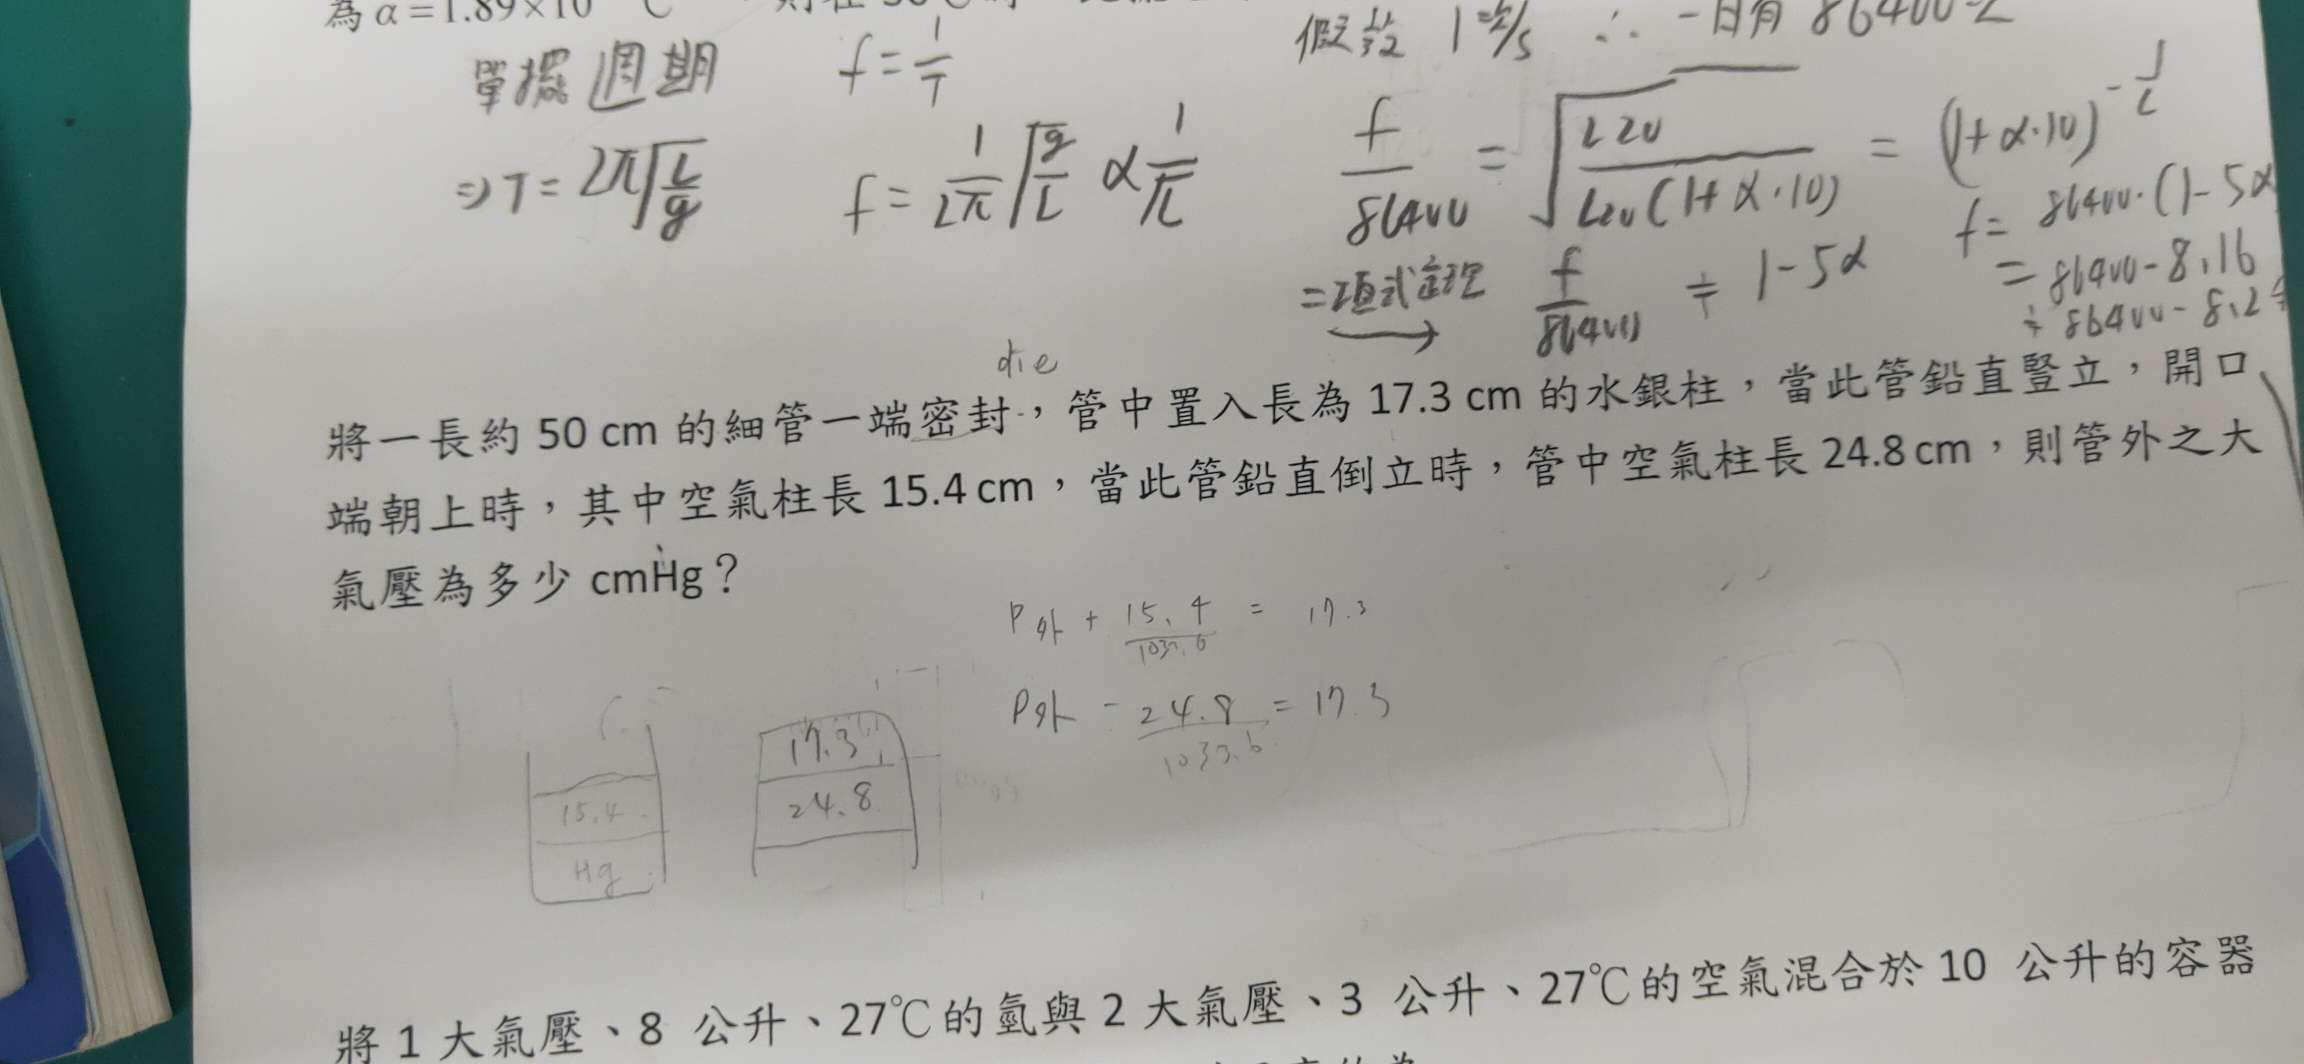 為 α = 1.89×10 ℃
單擺週期 f = 1/T 假設 1 /s ∴ 一日有 86400
⇒ T = 2π√(L/g) f = 1/2π √(g/L) ∝ 1/√L f/86400 = √(L20/L20(1+α·10)) = (1+α·10)^-1/2
f = 86400·(1-5α
二項式定理 f/86400 ≑ 1-5α = 86400-8.16
≑ 86400-8.2
die
將一長約 50 cm 的細管一端密封，管中置入長為 17.3 cm 的水銀柱，當此管鉛直豎立，開口
端朝上時，其中空氣柱長 15.4 cm，當此管鉛直倒立時，管中空氣柱長 24.8 cm，則管外之大
氣壓為多少 cmHg？
P外 + 15.4/1033.6 = 17.3
P外 - 24.8/1033.6 = 17.3
17.3
15.4 24.8
Hg
將 1 大氣壓、8 公升、27℃的氫與 2 大氣壓、3 公升、27℃的空氣混合於 10 公升的容器